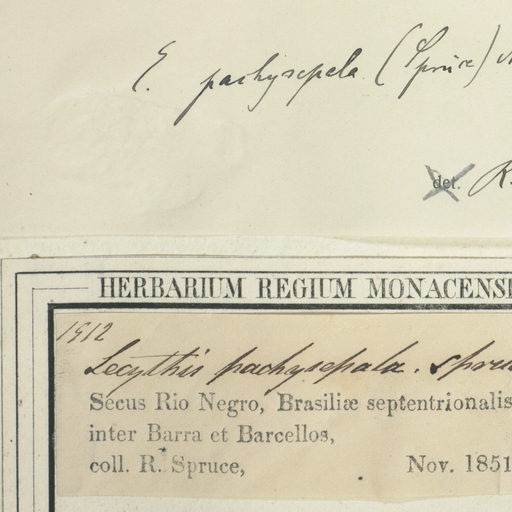 E. pachysepala (Spruce)
det. R.
HERBARIUM REGIUM MONACENS
1912
Lecythis pachysepala. Spru
Secus Rio Negro, Brasiliæ septentrionalis
inter Barra et Barcellos,
coll. R. Spruce, Nov. 1851